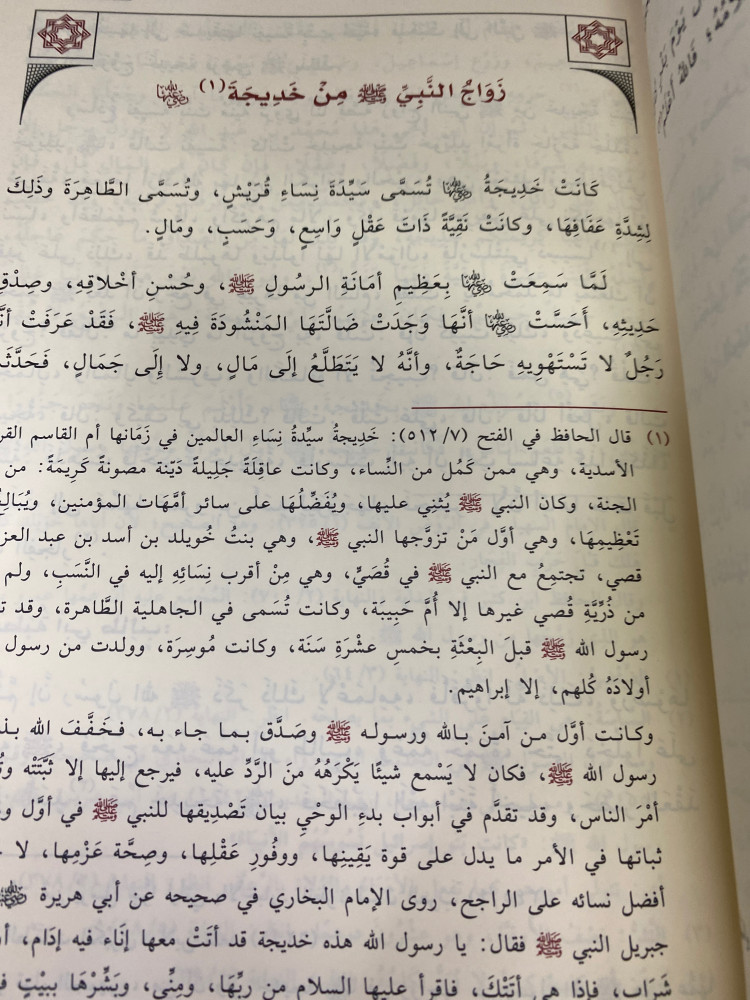 زَوَاجُ النَّبِيِّ ﷺ مِنْ خَدِيجَةَ(١) رضي الله عنها
كَانَتْ خَدِيجَةُ رضي الله عنها تُسَمَّى سَيِّدَةَ نِسَاءِ قُرَيْشٍ، وتُسَمَّى الطَّاهِرَةَ وذَلِكَ
لِشِدَّةِ عَفَافِهَا، وكانَتْ نَقِيَّةً ذَاتَ عَقْلٍ وَاسِعٍ، وَحَسَبٍ، ومَالٍ.
لَمَّا سَمِعَتْ رضي الله عنها بِعَظِيمِ أمَانَةِ الرسُولِ ﷺ، وحُسْنِ أخْلاقِهِ، وصِدْقِ
حَدِيثِهِ، أَحَسَّتْ رضي الله عنها أنَّهَا وَجَدَتْ ضَالَّتَهَا المَنْشُودَةَ فِيهِ ﷺ، فَقَدْ عَرَفَتْ
رَجُلٌ لا تَسْتَهْوِيهِ حَاجَةٌ، وأنَّهُ لا يَتَطَلَّعُ إلَى مَالٍ، ولا إِلَى جَمَالٍ،
(١) قال الحافظ في الفتح (٥١٢/٧): خَدِيجةُ سيِّدةُ نِسَاءِ العالمين في زَمَانها أم القاسم
الأسدية، وهي ممن كَمُل من النِّساء، وكانت عاقِلَةً جَلِيلةً دَيّنة مصونةً كَرِيمَةً: من
الجنة، وكان النبي ﷺ يُثنِي عليها، ويُفَضِّلُهَا على سائر أمَّهَات المؤمنين،
تَعْظِيمِهَا، وهي أوَّل مَنْ تزوَّجها النبي ﷺ، وهي بنتُ خُويلد بن أسد بن عبد
قصي، تجتمِعُ مع النبي ﷺ في قُصَيٍّ، وهي مِنْ أقرب نِسَائهِ إليه في النَّسَبِ، ولم
من ذُرِّيَّةِ قُصي غيرها إلا أُمَّ حَبِيبَة، وكانت تُسَمى في الجاهلية الطَّاهرة، وقد
رسول الله ﷺ قبلَ البِعْثَةِ بخمسِ عشْرَةِ سَنَة، وكانت مُوسِرَة، وولدت من رسول
أولادَهُ كُلهم، إلا إبراهيم.
وكانت أوَّل من آمنَ بالله ورسوله ﷺ وصَدَّق بما جاء به، فخَفَّفَ الله
رسول الله ﷺ، فكان لا يَسْمع شيئًا يَكْرَهُهُ منَ الرَّدِّ عليه، فيرجع إليها إلا ثَبَّتَتْه
أمْرَ الناس، وقد تقدَّم في أبواب بدءِ الوحْيِ بيان تَصْدِيقها للنبي ﷺ في أوَّل
ثباتها في الأمر ما يدل على قوة يَقِينِها، ووفُورِ عَقْلِها، وصِحَّة عَزْمِها، لا
أفضل نسائه على الراجح، روى الإمام البخاري في صحيحه عن أبي هريرة
جبريل النبي ﷺ فقال: يا رسول الله هذه خديجة قد أتَتْ معها إنَاء فيه إدَام،
شَرَاب، فإذا هي أتَتْكَ، فاقرأ عليها السلام من ربِّهَا، ومِنِّي، وبَشِّرْهَا ببيْتٍ